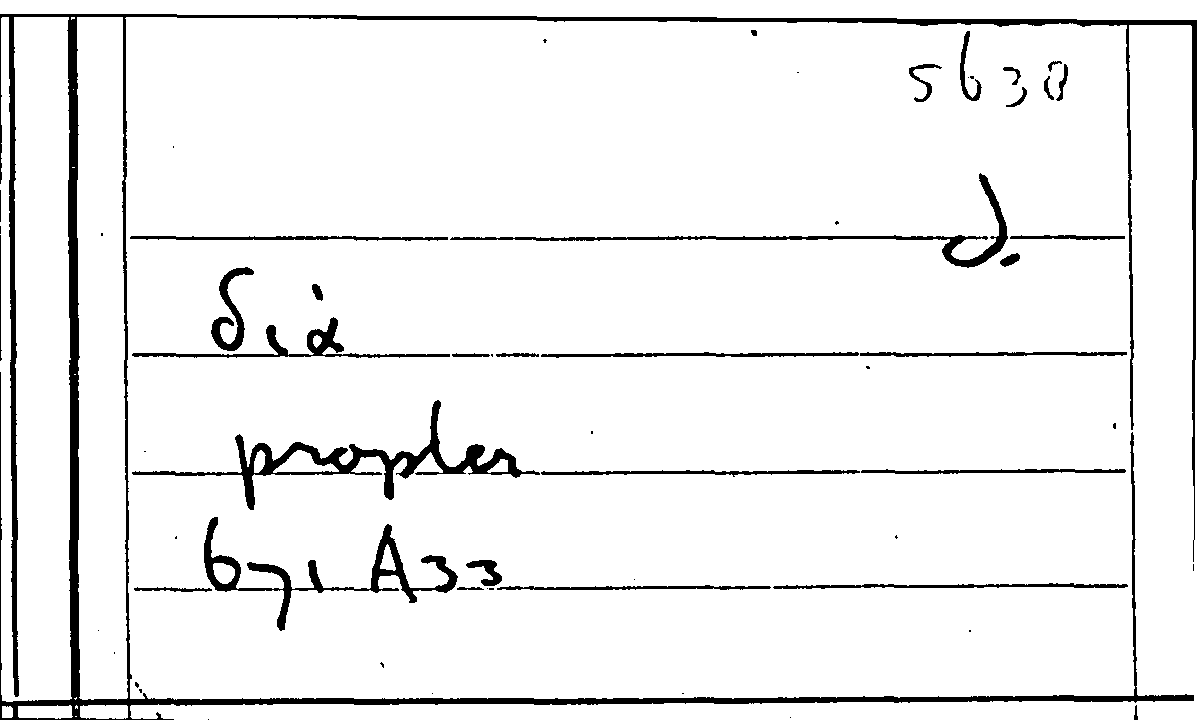 5638
d.
διὰ
propter
671 A33